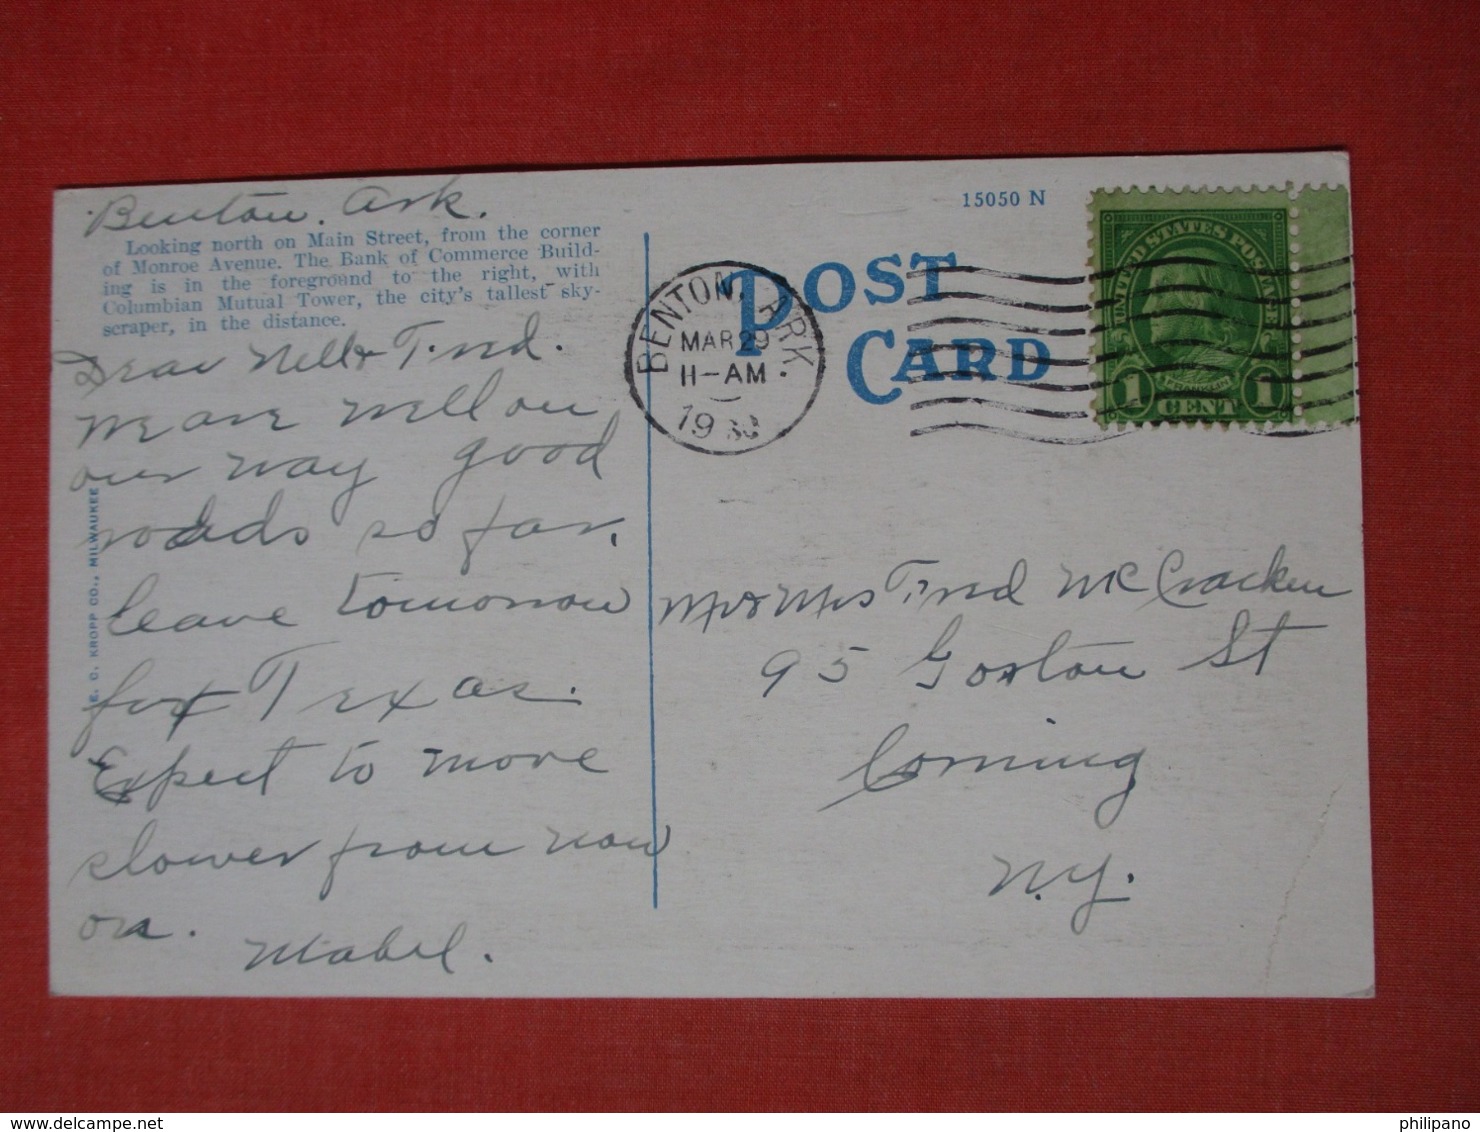 Benton. Ark.
Looking north on Main Street, from the corner
of Monroe Avenue. The Bank of Commerce Build-
ing is in the foreground to the right, with
Columbian Mutual Tower, the city's tallest sky-
scraper, in the distance.
Dear Nell & Fred.
We are well on
our way good
roads so far.
leave tomorrow
for Texas.
Expect to move
slower from now
on.
Mabel.
E. C. KROPP CO., MILWAUKEE
15050 N
POST
CARD
BENTON, ARK.
MAR 29
11-AM
19
UNITED STATES POSTAGE
FRANKLIN
1 CENT 1
Mr & Mrs Fred McCracken
95 Goston St
Corning
N.Y.
philipano